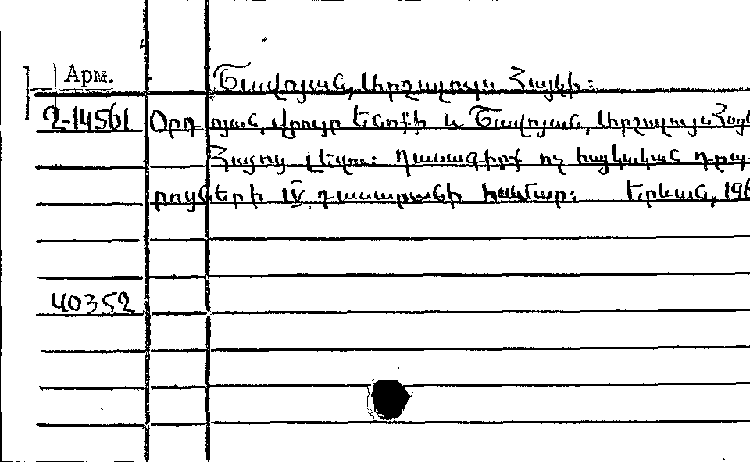 Арм.
Շավոյան, Արշալույս Հայկի:
2-14561 Օրդոյան, Հրոյր Ենոքի և Շավոյան, Արշալույս Հայկ
Հայոց լեզու: Դասագիրք ոչ հայկական դպ
րոցների IV դասարանի համար: Երևան, 196
40352